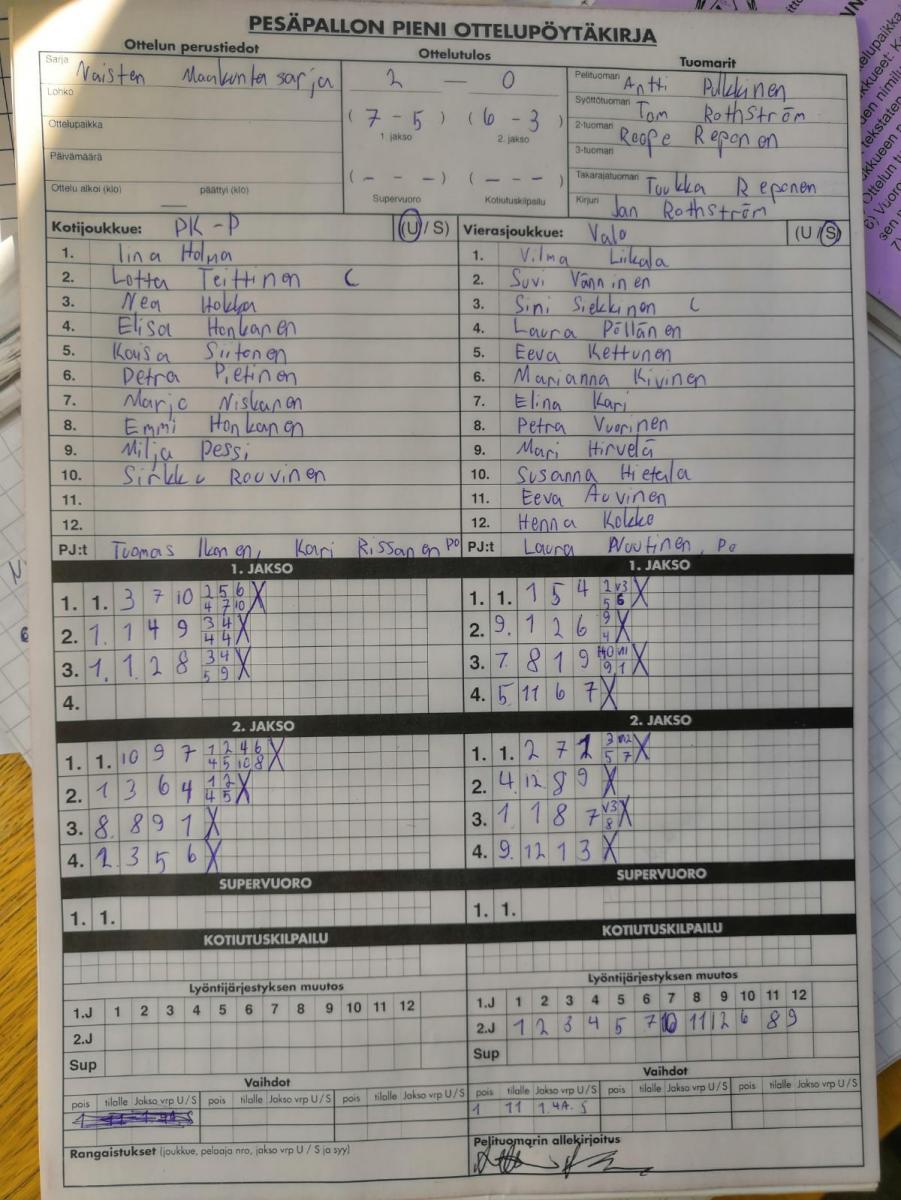 PESÄPALLON PIENI OTTELUPÖYTÄKIRJA
Ottelun perustiedot
Ottelutulos
Tuomarit
Sarja Naisten Maakuntasarja
Lohko
Ottelupaikka
Päivämäärä
Ottelu alkoi (klo) päättyi (klo)
2 — 0
( 7 - 5 ) ( 6 - 3 )
1. jakso 2. jakso
( - - - ) ( - - - )
Supervuoro Kotiutuskilpailu
Pelituomari Antti Pulkkinen
Syöttötuomari Tom Rothström
2-tuomari Roope Reponen
3-tuomari
Takarajatuomari Tuukka Reponen
Kirjuri Jan Rothström
Kotijoukkue: PK-P (U / S)
1. Iina Holma
2. Lotta Teittinen C
3. Nea Hokka
4. Elisa Honkanen
5. Kaisa Siitonen
6. Petra Pietinen
7. Marjo Niskanen
8. Emmi Honkanen
9. Milja Pessi
10. Sirkku Rouvinen
11.
12.
PJ:t Tuomas Ikonen, Kari Rissanen PO
Vierasjoukkue: Valo (U / S)
1. Vilma Liikala
2. Suvi Vänninen
3. Sini Siekkinen C
4. Laura Pöllänen
5. Eeva Kettunen
6. Marianna Kivinen
7. Elina Kari
8. Petra Vuorinen
9. Mari Hirvelä
10. Susanna Hietala
11. Eeva Auvinen
12. Henna Kokko
PJ:t Laura Nuutinen, Po
1. JAKSO
1. 1. 3 7 10 2 5 6 X
4 7 10
2. 1. 1 4 9 3 4 X
4 4
3. 1. 1 2 8 3 4 X
5 9
4.
1. JAKSO
1. 1. 1 5 4 2 v3 X
5 6
2. 9. 1 2 6 9 X
4
3. 7. 8 1 9 X
9 1
4. 5 11 6 7 X
2. JAKSO
1. 1. 10 9 7 1 2 4 6 X
4 5 10 8
2. 1 3 6 4 1 2 X
4 5
3. 8. 8 9 1 X
4. 2. 3 5 6 X
2. JAKSO
1. 1. 2 7 1 3 v12 X
5 7
2. 4. 12 8 9 X
3. 1 1 8 7 v3 X
8
4. 9. 12 1 3 X
SUPERVUORO
1. 1.
SUPERVUORO
1. 1.
KOTIUTUSKILPAILU
KOTIUTUSKILPAILU
Lyöntijärjestyksen muutos
1.J 1 2 3 4 5 6 7 8 9 10 11 12
2.J
Sup
Lyöntijärjestyksen muutos
1.J 1 2 3 4 5 6 7 8 9 10 11 12
2.J 1 2 3 4 5 7 10 11 12 6 8 9
Sup
Vaihdot
pois tilalle Jakso vrp U / S pois tilalle Jakso vrp U / S pois tilalle Jakso vrp U / S
Vaihdot
pois tilalle Jakso vrp U / S pois tilalle Jakso vrp U / S pois tilalle Jakso vrp U / S
1 11 1. 4A. S
Rangaistukset (joukkue, pelaaja nro, jakso vrp U / S ja syy)
Pelituomarin allekirjoitus